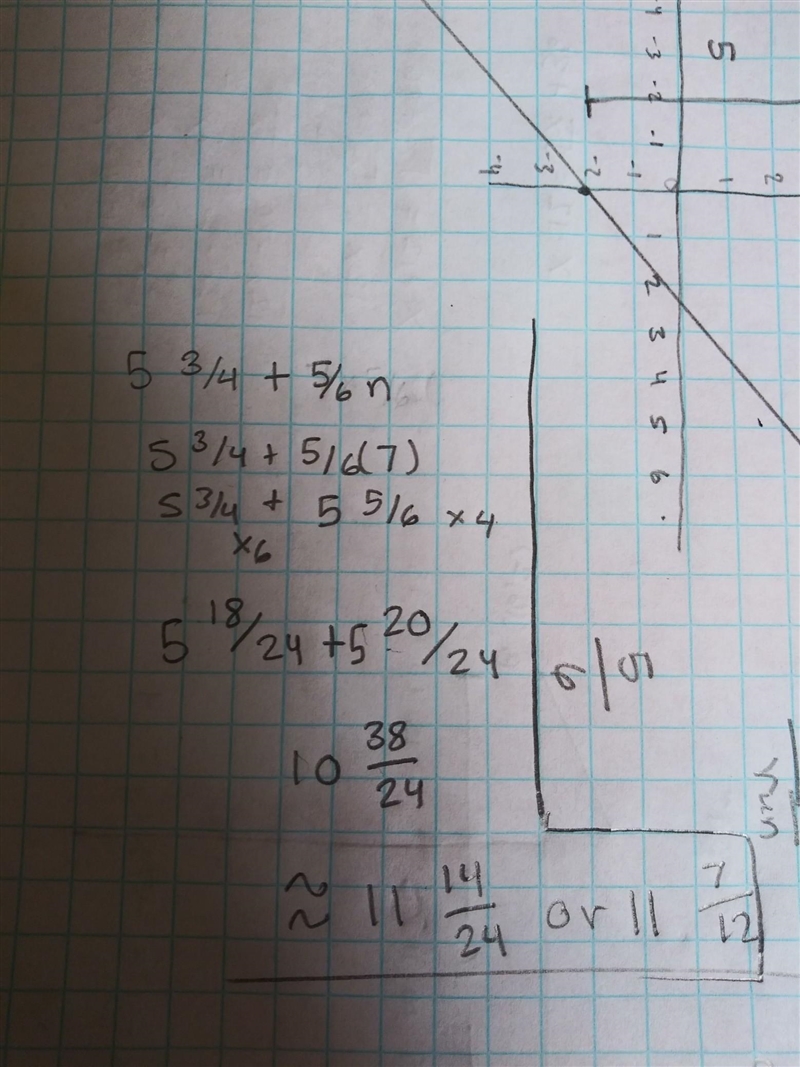 -4 -3 -2 -1 0 1 2 3 4 5 6
-4 -3 -2 -1 1 2
5
5 3/4 + 5/6 n
5 3/4 + 5/6(7)
5 3/4 + 5 5/6 x4
x6
5 18/24 + 5 20/24
10 38/24
≈ 11 14/24 or 11 7/12
5/6
run